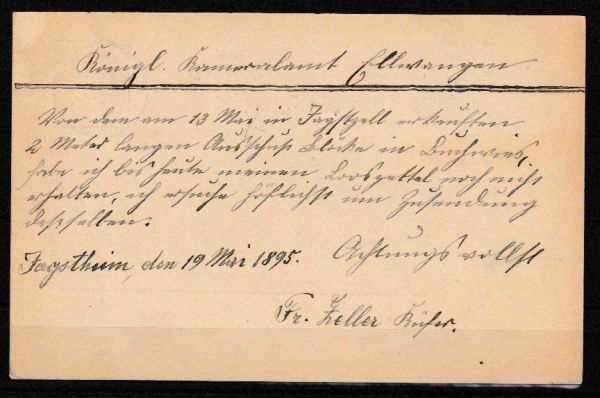 Königl. Kameralamt Ellwangen.
Von dem am 13 Mai in Jagstzell erkauften
2 Meter langen Ausschuß Blöcke in Buchwies,
habe ich bis heute meinen Looszettel noch nicht
erhalten, ich ersuche höflichst um Zusendung
desselben.
Jagstheim, den 19 Mai 1895. Achtungsvollst
Fr. Zeller Küfer.